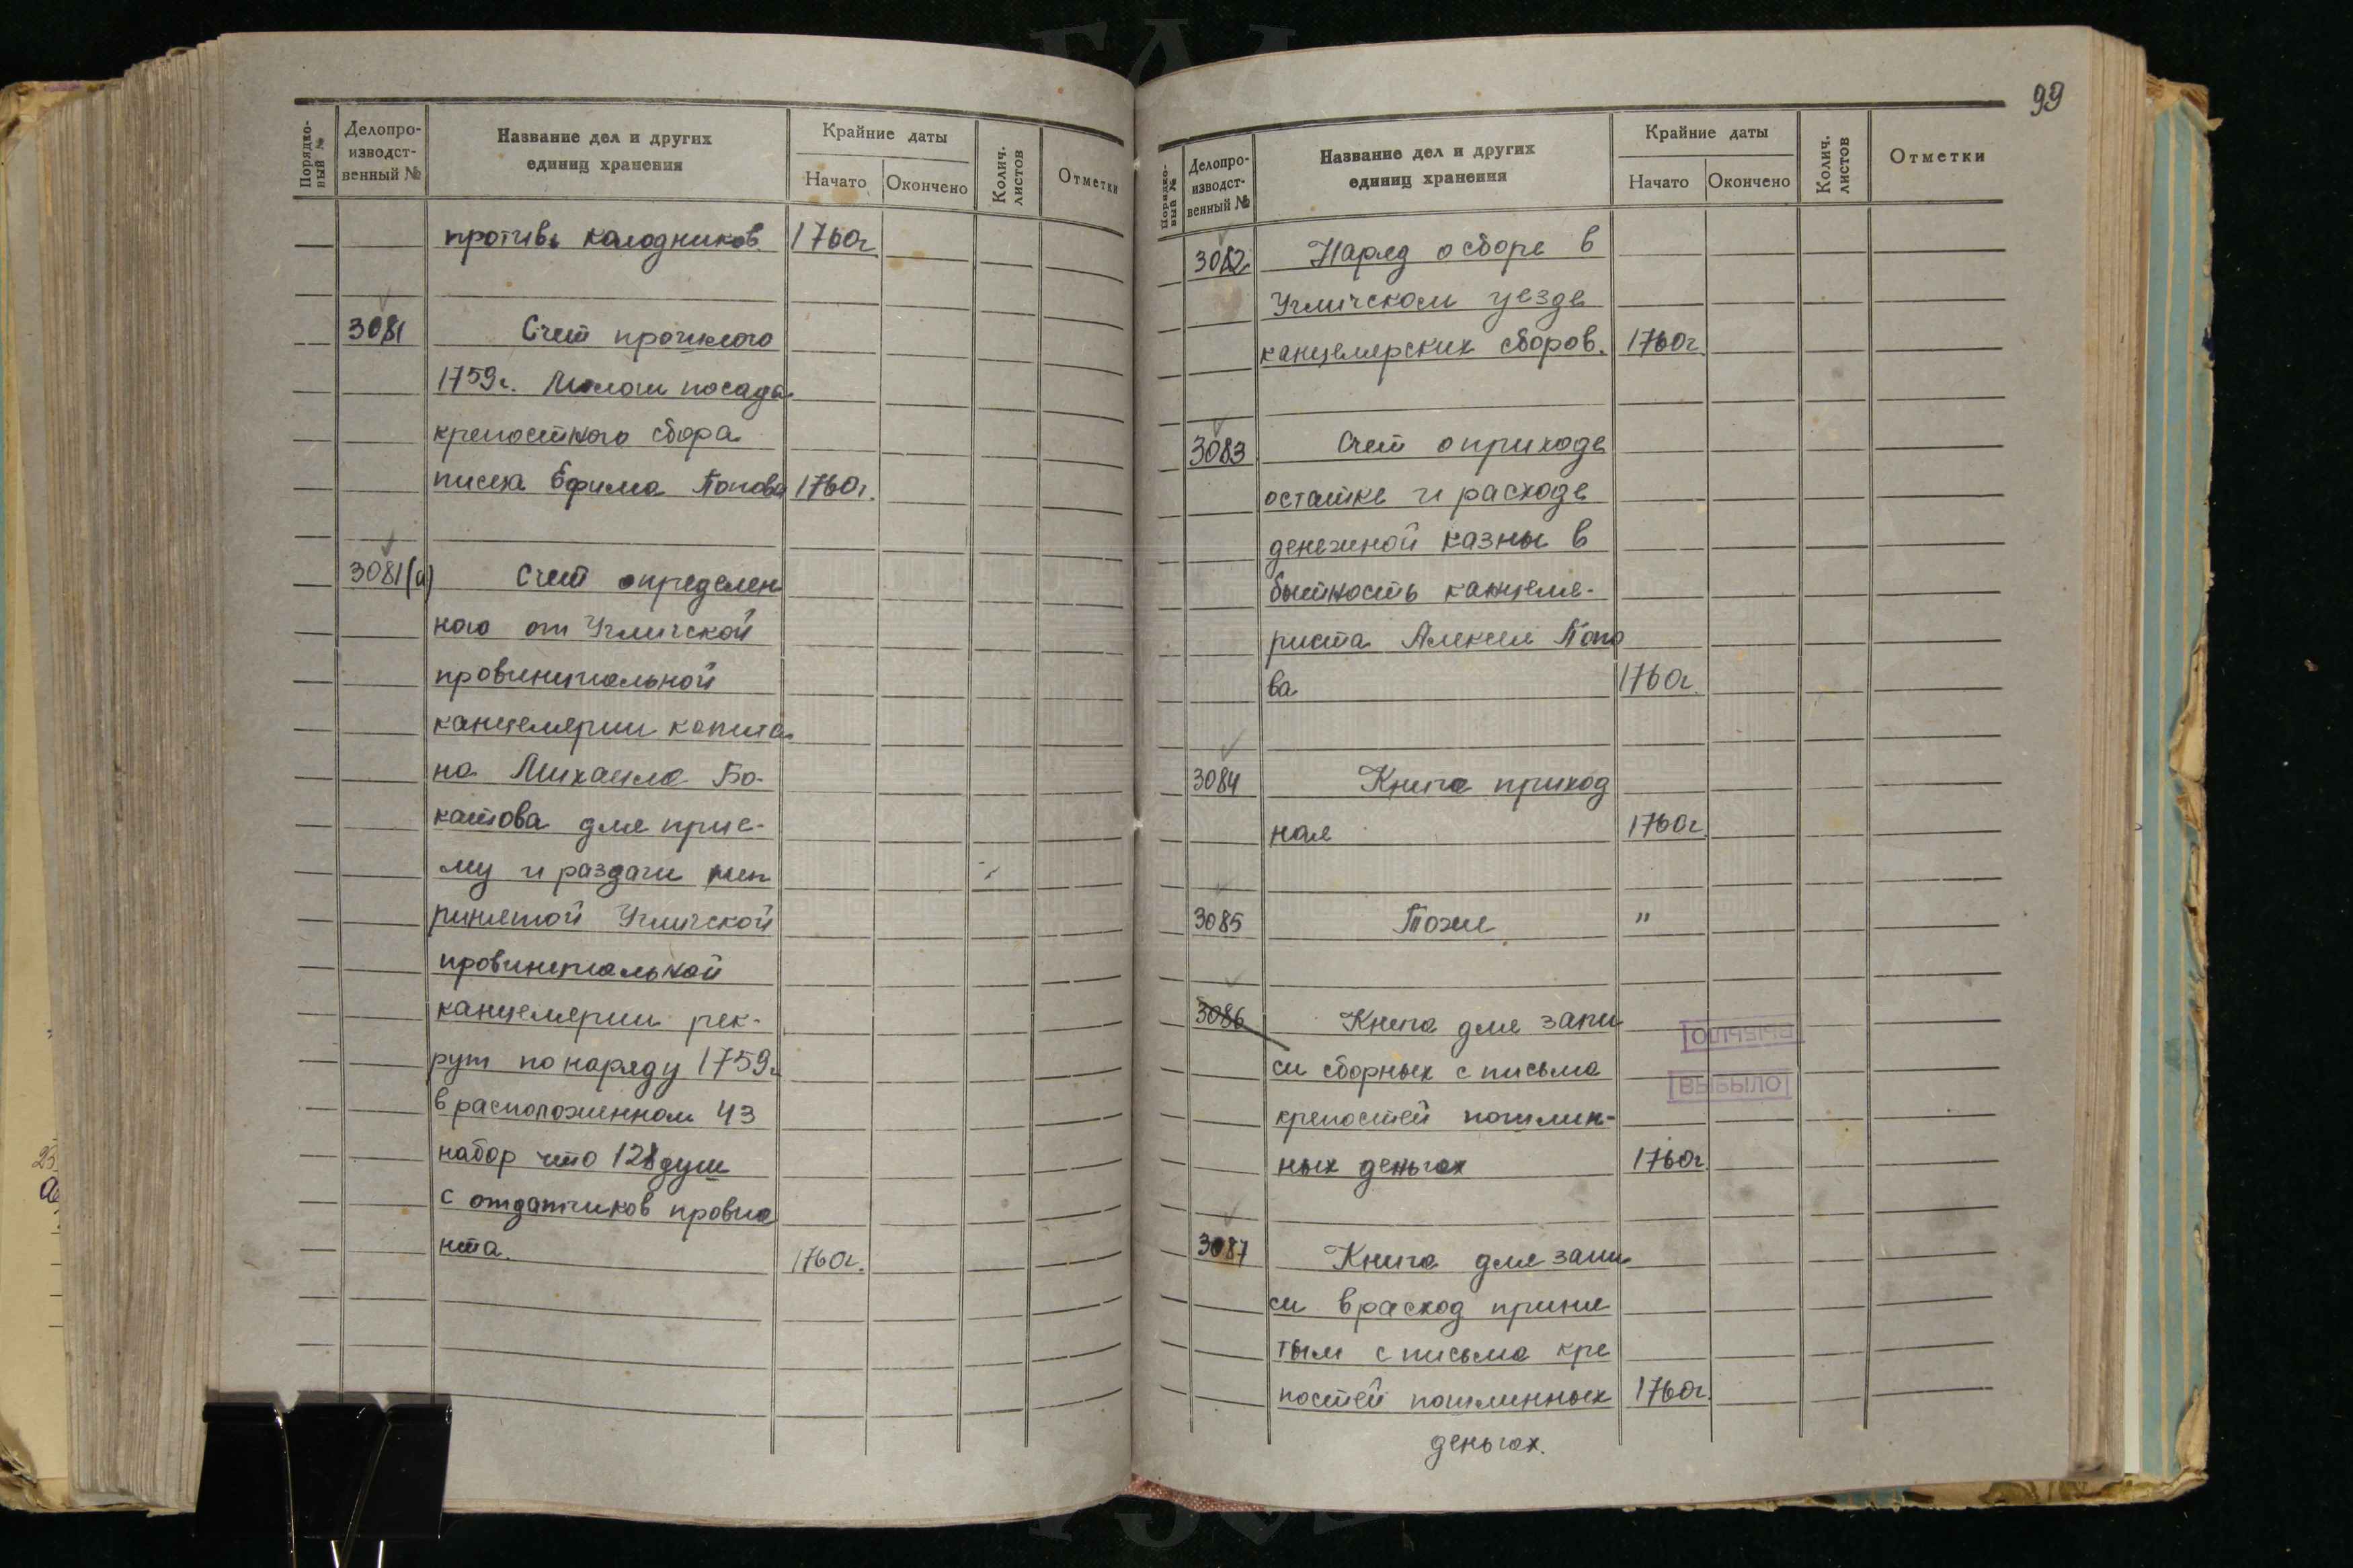 Порядко-
вый №
Делопро-
изводст-
венный №
Название дел и других
единиц хранения
Крайние даты
Начато
Окончено
Колич.
листов
Отметки
против колодников 1760г.
3081 Счет прошлого
1759г. Мологи посада
крепостного сбора
писца Ефима Попова 1760г.
3081(а) Счет определен
ного от Угличской
провинциальной
канцелярии капита
на Михаила Ба-
катова для прие-
му и раздачи
Угличской
провинциальной
канцелярии рек-
рут по наряду 1759г
в расположенном 43
набор что 128 душ
с отдатчиков провиа
нта. 1760г.
99
Порядко-
вый №
Делопро-
изводст-
венный №
Название дел и других
единиц хранения
Крайние даты
Начато
Окончено
Колич.
листов
Отметки
3082 Наряд о сборе в
Угличском уезде
канцелярских сборов. 1760г.
3083 Счет о приходе
остатке и расходе
денежной казны в
бытность канцеля-
риста Алексея Попо
ва 1760г.
3084 Книга приход
ная 1760г.
3085 Тоже "
3086 Книга для запи
си сборных с письма
крепостей пошлин-
ных деньгах 1760г.
ВЫБЫЛО
3087 Книга для запи
си в расход приня
тым с письма кре
постей пошлинных 1760г.
деньгах.